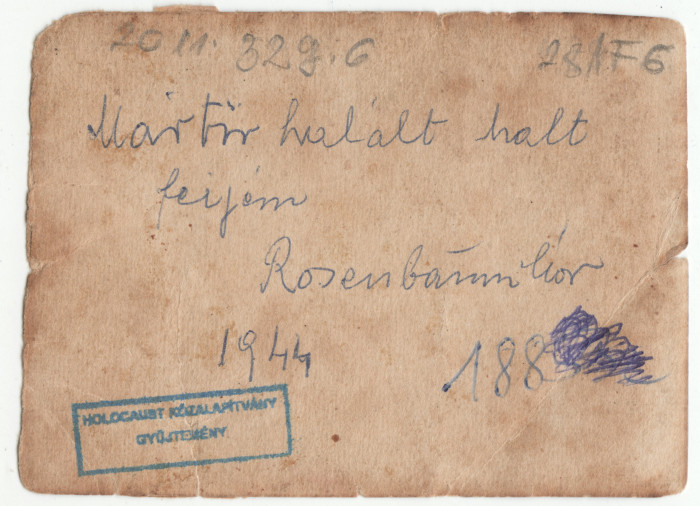 2011.329.6
Mártír halált halt
feijém
Rosenbáum
1944 188
HOLOCAUST KÖZALAPÍTVÁNY
GYŰJTEMÉNY